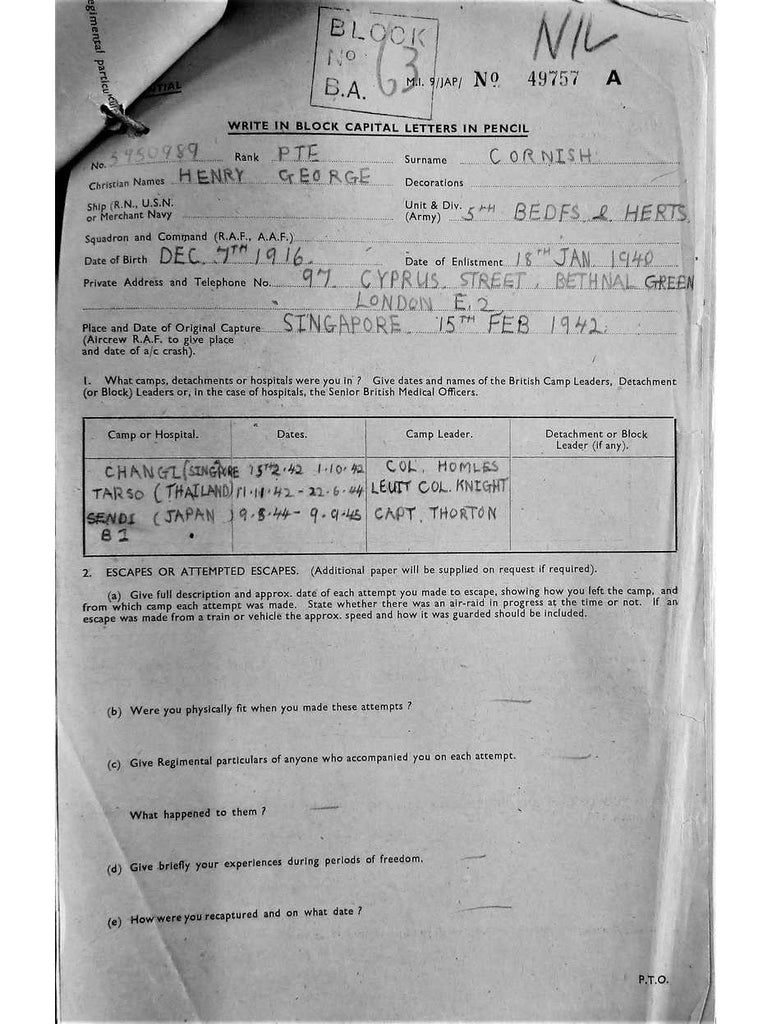 egimental particul
TIAL
BLOCK
No 63
B.A.
NIL
M.I. 9/JAP/ No 49757 A
WRITE IN BLOCK CAPITAL LETTERS IN PENCIL
No. 5950989 Rank PTE Surname CORNISH
Christian Names HENRY GEORGE Decorations
Ship (R.N., U.S.N. or Merchant Navy Unit & Div. (Army) 5TH BEDFS & HERTS
Squadron and Command (R.A.F., A.A.F.)
Date of Birth DEC. 7TH 1916. Date of Enlistment 18TH JAN 1940
Private Address and Telephone No. 97 CYPRUS STREET, BETHNAL GREEN
LONDON E.2
Place and Date of Original Capture SINGAPORE 15TH FEB 1942.
(Aircrew R.A.F. to give place
and date of a/c crash).
1. What camps, detachments or hospitals were you in ? Give dates and names of the British Camp Leaders, Detachment
(or Block) Leaders or, in the case of hospitals, the Senior British Medical Officers.
Camp or Hospital. Dates. Camp Leader. Detachment or Block
Leader (if any).
CHANGI (SINGPORE 15TH2.42 1.10.42 COL. HOMLES
TARSO (THAILAND) 11.11.42 - 22.6.44 LEUTT COL. KNIGHT
SENDI (JAPAN ) 9.8.44 - 9.9.45 CAPT. THORTON
B1
2. ESCAPES OR ATTEMPTED ESCAPES. (Additional paper will be supplied on request if required).
(a) Give full description and approx. date of each attempt you made to escape, showing how you left the camp, and
from which camp each attempt was made. State whether there was an air-raid in progress at the time or not. If an
escape was made from a train or vehicle the approx. speed and how it was guarded should be included.
(b) Were you physically fit when you made these attempts ?
(c) Give Regimental particulars of anyone who accompanied you on each attempt.
What happened to them ?
(d) Give briefly your experiences during periods of freedom.
(e) How were you recaptured and on what date ?
P.T.O.